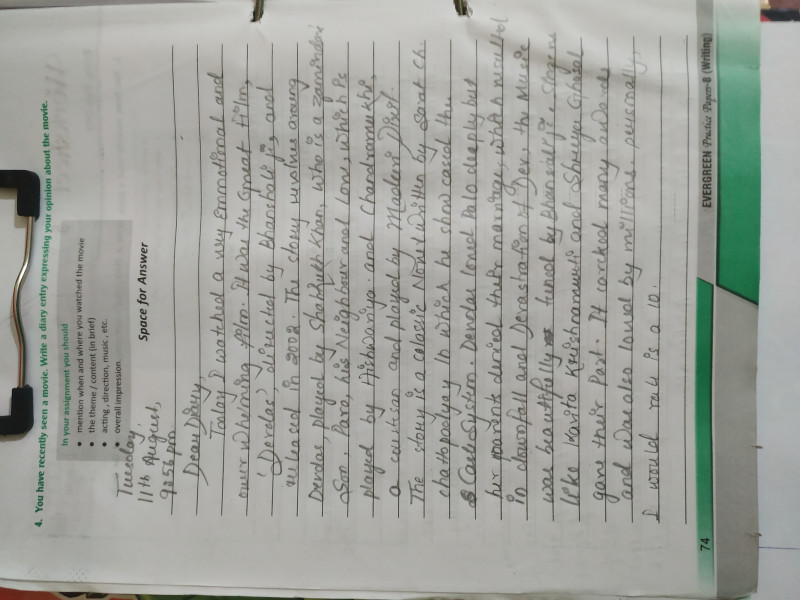 4. You have recently seen a movie. Write a diary entry expressing your opinion about the movie.
In your assignment you should
• mention when and where you watched the movie
• the theme / content (in brief)
• acting, direction, music, etc.
• overall impression
Space for Answer
Tuesday,
11th August,
9:56 pm
Dear Diary,
Today I watched a very Emmotional and
overwhelming film. It was the Great film,
'Devdas', directed by Bhanshali ji, and
released in 2002. The story revolves around
Devdas, played by Shahrukh Khan, who is a zamindari
Son, Paro, his Neighbour and Love, which is
played by Aishwariya. and Chandramukhi,
a courtsan and played by Madhuri Dixit.
The story is a classic Novel written by Sarat Ch.
chattopadyay In which he show cased the
Caste System. Devdas loved Paro deeply but
her parent denied their marriage, which resulted
in downfall and Devastration of Dev, the Music
was beautifully tuned by Bhansderji. Singers
like Kavita Krishnamurti and Shreya Ghosal
gave their Part. It carked many awards
and was also loved by millions. personally,
I would rate is a 10.
74
EVERGREEN Practice Papers-8 (Writing)